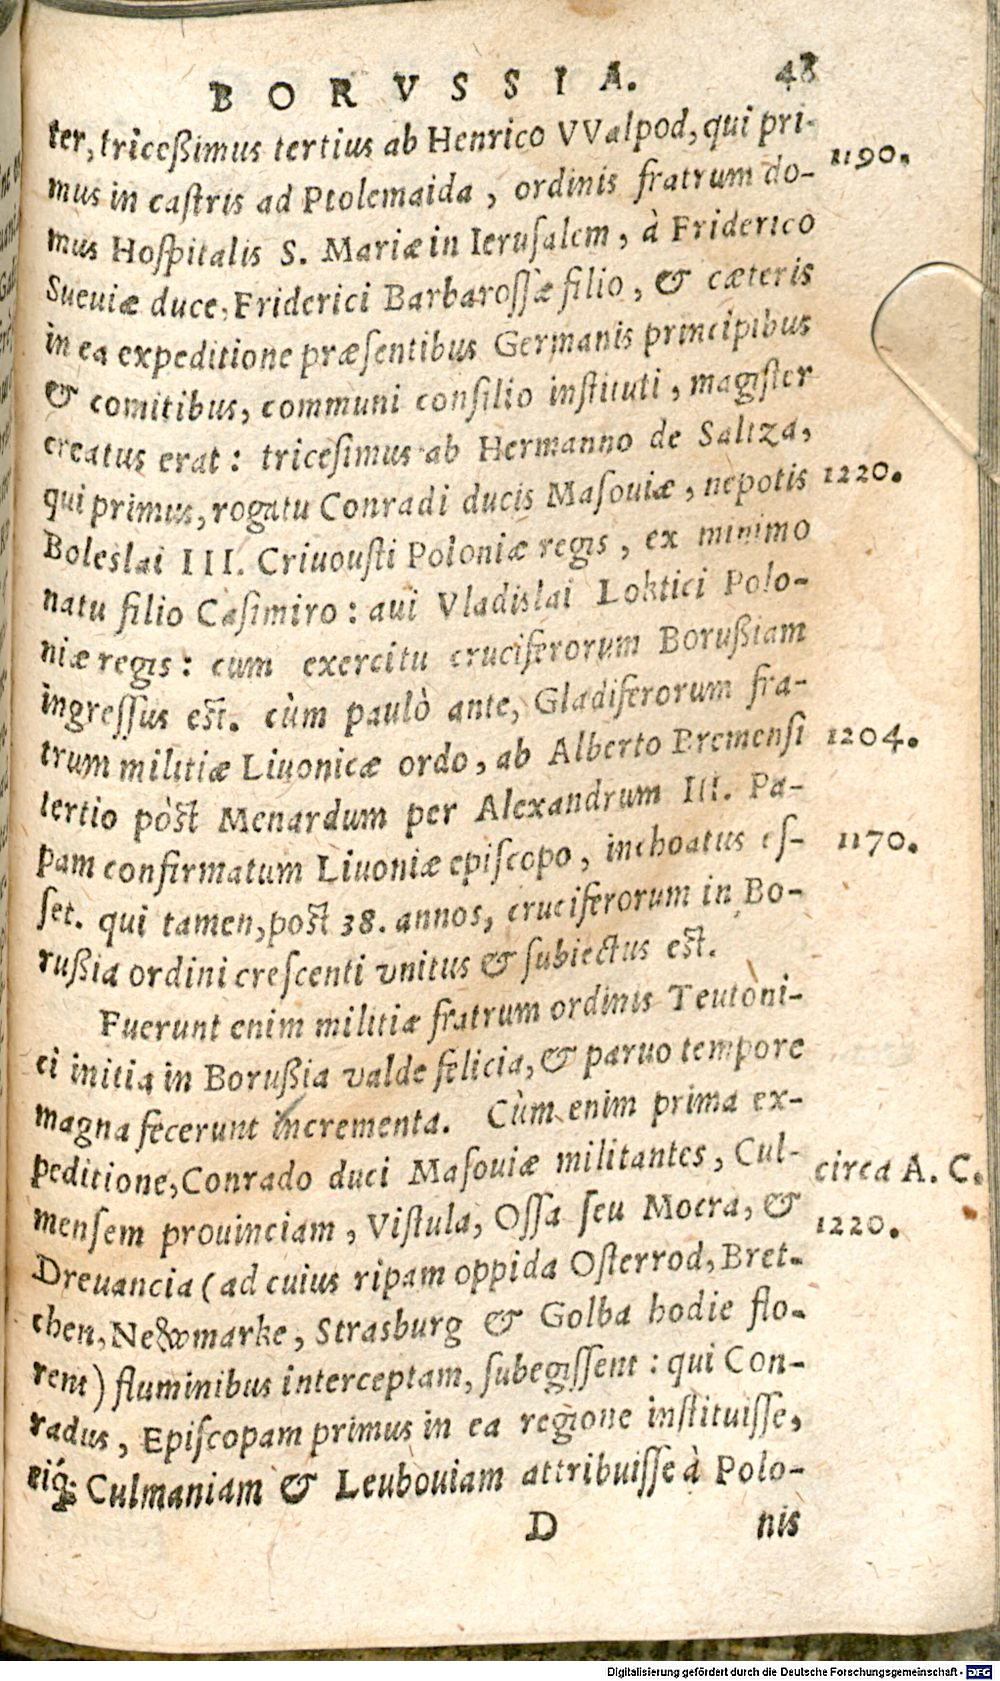 BORVSSIA. 48
ter, triceßimus tertius ab Henrico VValpod, qui pri-
mus in castris ad Ptolemaida, ordinis fratrum do- 1190.
mus Hoſpitalis S. Mariæ in Ieruſalem, à Friderico
Sueuiæ duce, Friderici Barbaroſſæ filio, & cæteris
in ea expeditione præſentibus Germanis principibus
& comitibus, communi conſilio inſtituti, magiſter
creatus erat: triceſimus ab Hermanno de Saltza,
qui primus, rogatu Conradi ducis Maſouiæ, nepotis 1220.
Boleslai III. Criuouſti Poloniæ regis, ex minimo
natu filio Caſimiro: aui Vladislai Loktici Polo-
niæ regis: cum exercitu cruciferorum Borußiam
ingreſſus eſt. cùm paulò ante, Gladiferorum fra-
trum militiæ Liuonicæ ordo, ab Alberto Bremenſi 1204.
tertio pòſt Menardum per Alexandrum III. Pa-
pam confirmatum Liuoniæ epiſcopo, inchoatus eſ- 1170.
ſet. qui tamen, poſt 38. annos, cruciferorum in Bo-
rußia ordini creſcenti vnitus & ſubiectus eſt.
Fuerunt enim militiæ fratrum ordinis Teutoni-
ci initia in Borußia valde felicia, & paruo tempore
magna fecerunt incrementa. Cùm enim prima ex-
peditione, Conrado duci Maſouiæ militantes, Cul- circa A. C.
menſem prouinciam, Viſtula, Oſſa ſeu Mocra, & 1220.
Dreuancia (ad cuius ripam oppida Oſterrod, Bret-
chen, Newmarke, Strasburg & Golba hodie flo-
rent) fluminibus interceptam, ſubegiſſent: qui Con-
radus, Epiſcopam primus in ea regione inſtituiſſe,
eiq́; Culmaniam & Leuboviam attribuiſſe à Polo-
D nis
Digitalisierung gefördert durch die Deutsche Forschungsgemeinschaft - DFG